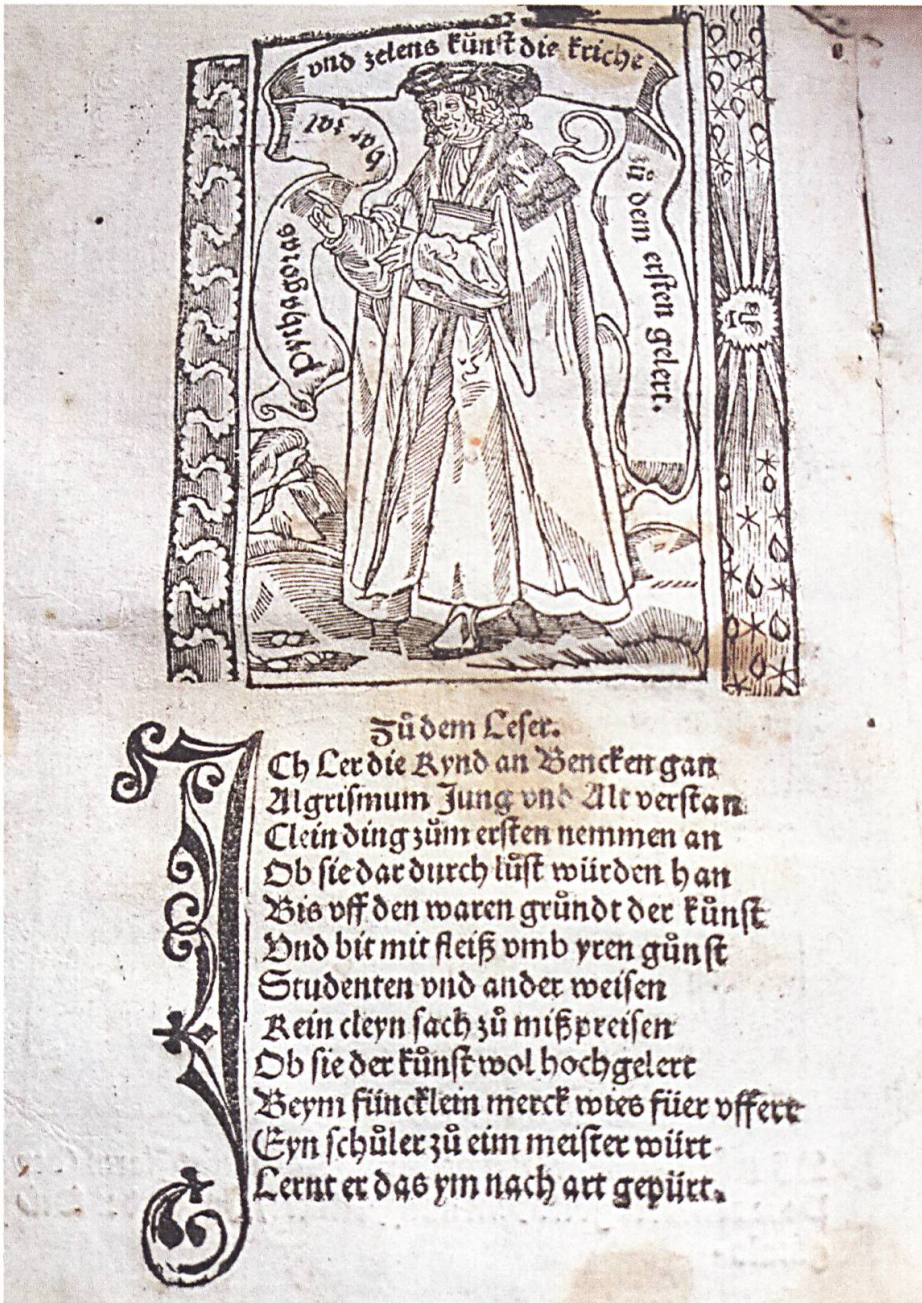 Pythagoras
har zal
vnd zelens kůnst die kriche
zů dem ersten gelert.
Zů dem Leser.
ICh Ler die Kynd an Bencken gan
Algrismum Jung vnd Alt verstan
Clein ding zům ersten nemmen an
Ob sie dar durch lůst würden han
Bis vff den waren gründt der kůnst
Vnd bit mit fleiß vmb yren gůnst
Studenten vnd ander weisen
Kein cleyn sach zů mißpreisen
Ob sie der kůnst wol hochgelert
Beym füncklein merck wies füer vffert
Eyn schůler zů eim meister würt
Lernt er das ym nach art gepürt.